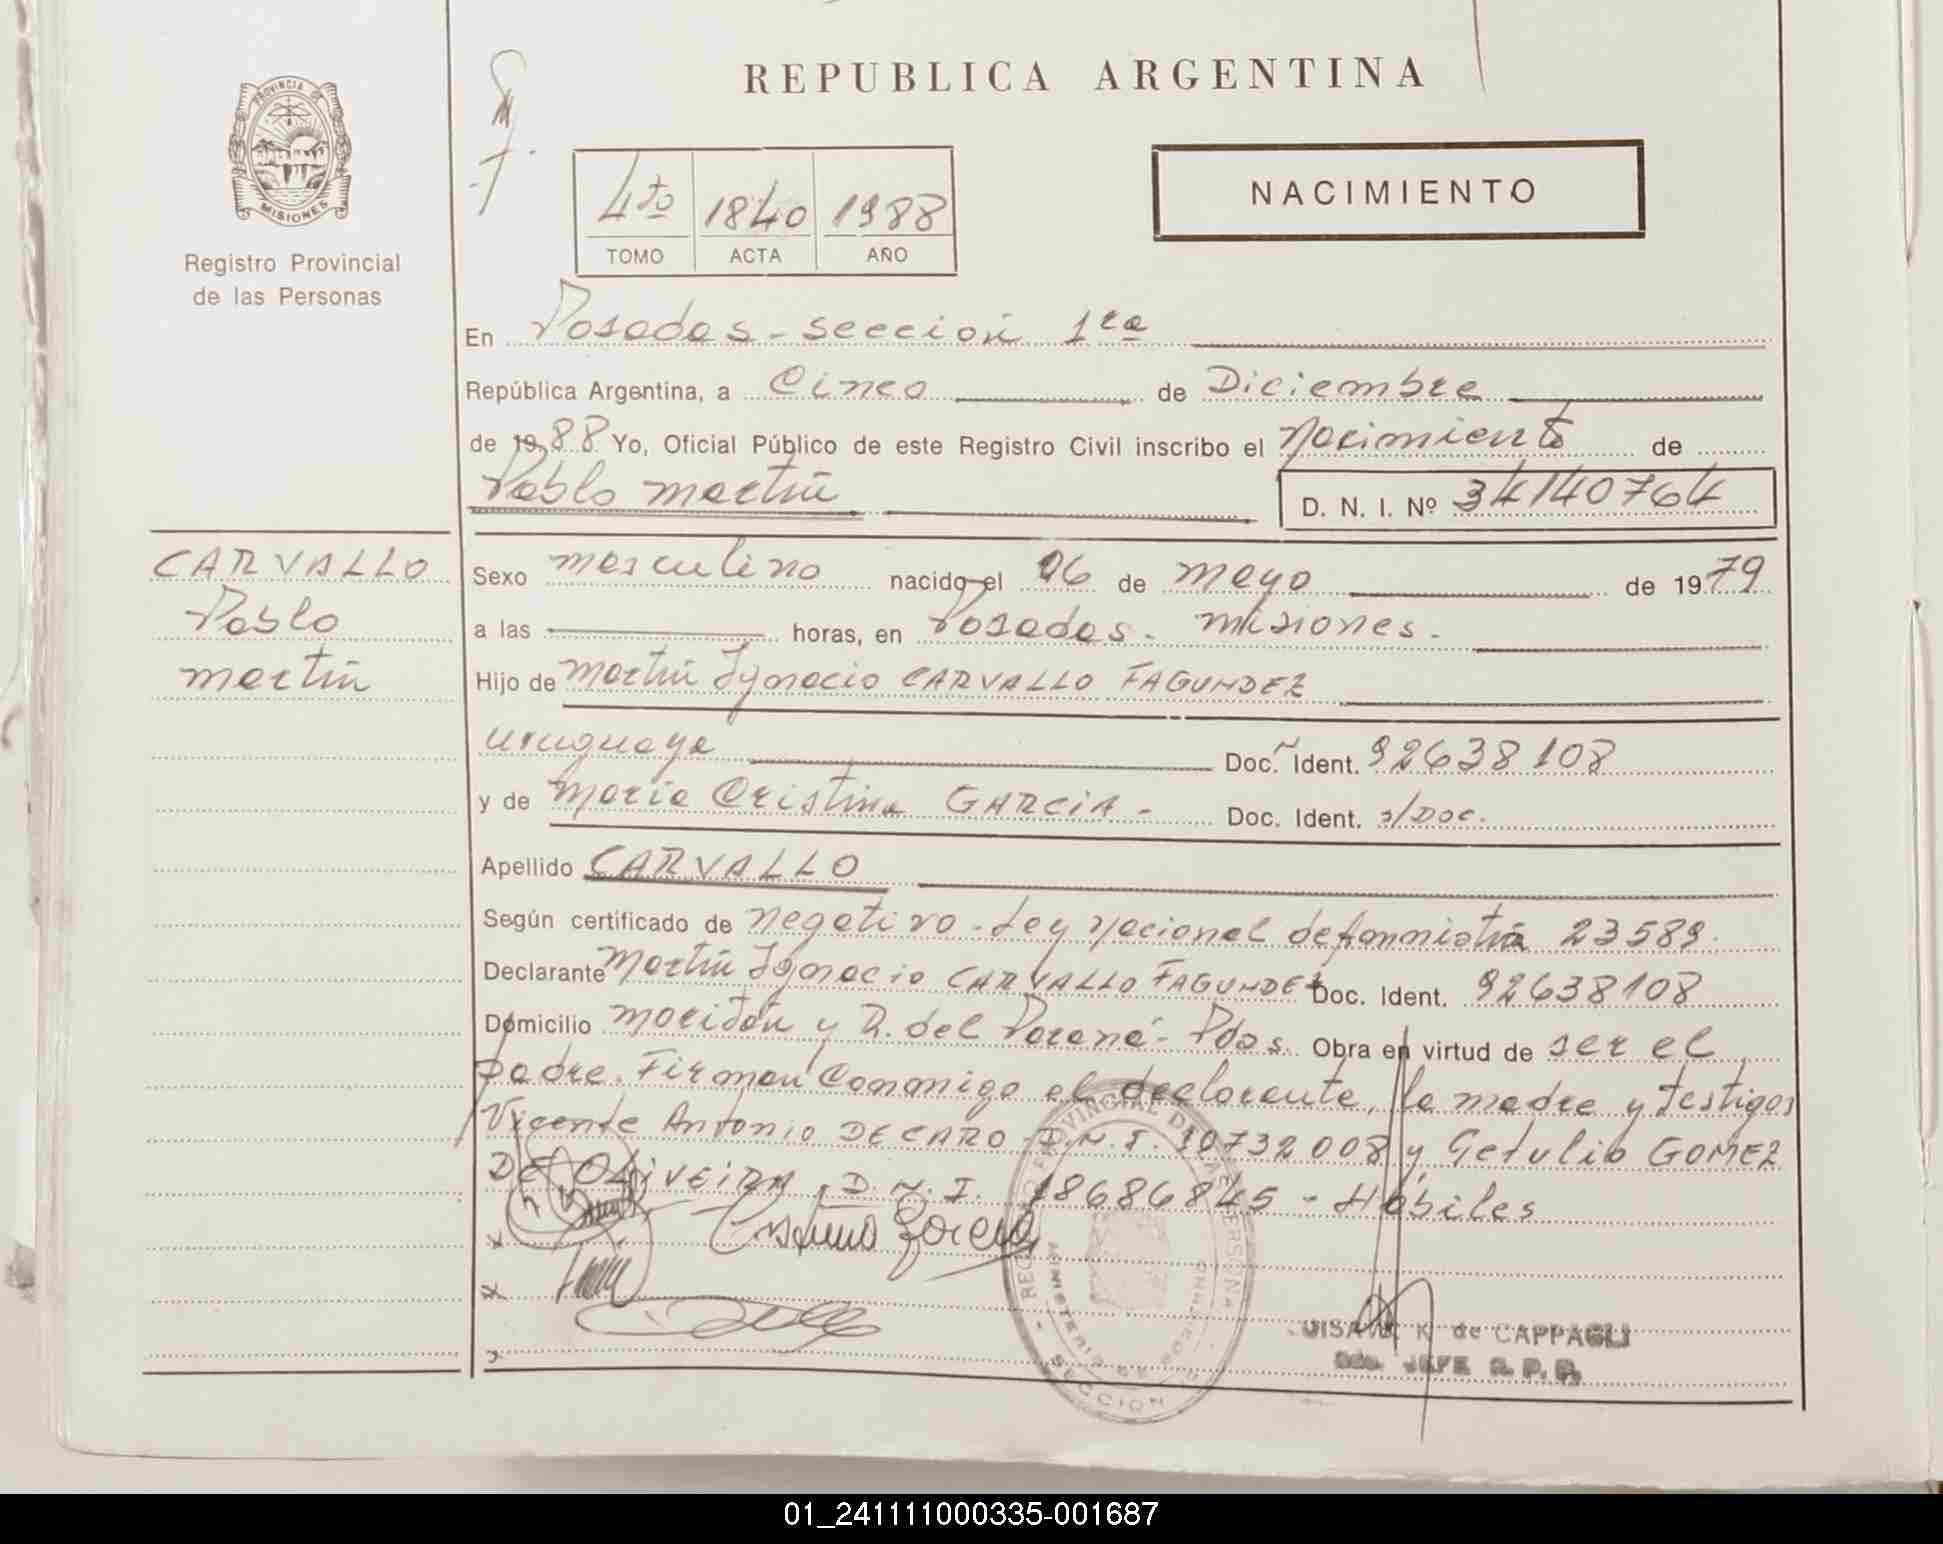 REPUBLICA ARGENTINA
PROVINCIA DE
MISIONES
Registro Provincial
de las Personas
4to 1840 1988
TOMO ACTA AÑO
NACIMIENTO
En Posadas - seccion 1ra
República Argentina, a Cinco de Diciembre
de 1988 Yo, Oficial Público de este Registro Civil inscribo el Nacimiento de
Pablo Martín D. N. I. Nº 34140764
CARVALLO
Pablo
Martín
Sexo masculino nacido el 06 de mayo de 1979
a las horas, en Posadas - Misiones -
Hijo de Martín Ignacio CARVALLO FAGUNDEZ
uruguaya Doc. Ident. 92638108
y de María Cristina GARCIA - Doc. Ident. s/Doc.
Apellido CARVALLO
Según certificado de Negativo - Ley Nacional de Amnistía 23589.
Declarante Martín Ignacio CARVALLO FAGUNDEZ Doc. Ident. 92638108
Domicilio y R. del Paraná - Pdas. Obra en virtud de ser el
padre. Firman conmigo el declarante, la madre y testigos
Vicente Antonio DE CARO - D.N.I. 10732008 y Getulio GOMEZ
DE OLIVEIRA D.N.I. 18686845 - Hábiles
Cristina Garcia
REGISTRO PROVINCIAL DE LAS PERSONAS
MINISTERIO DE GOBIERNO
SECCION
K de CAPPAGLI
JEFE R. P. P.
01_241111000335-001687